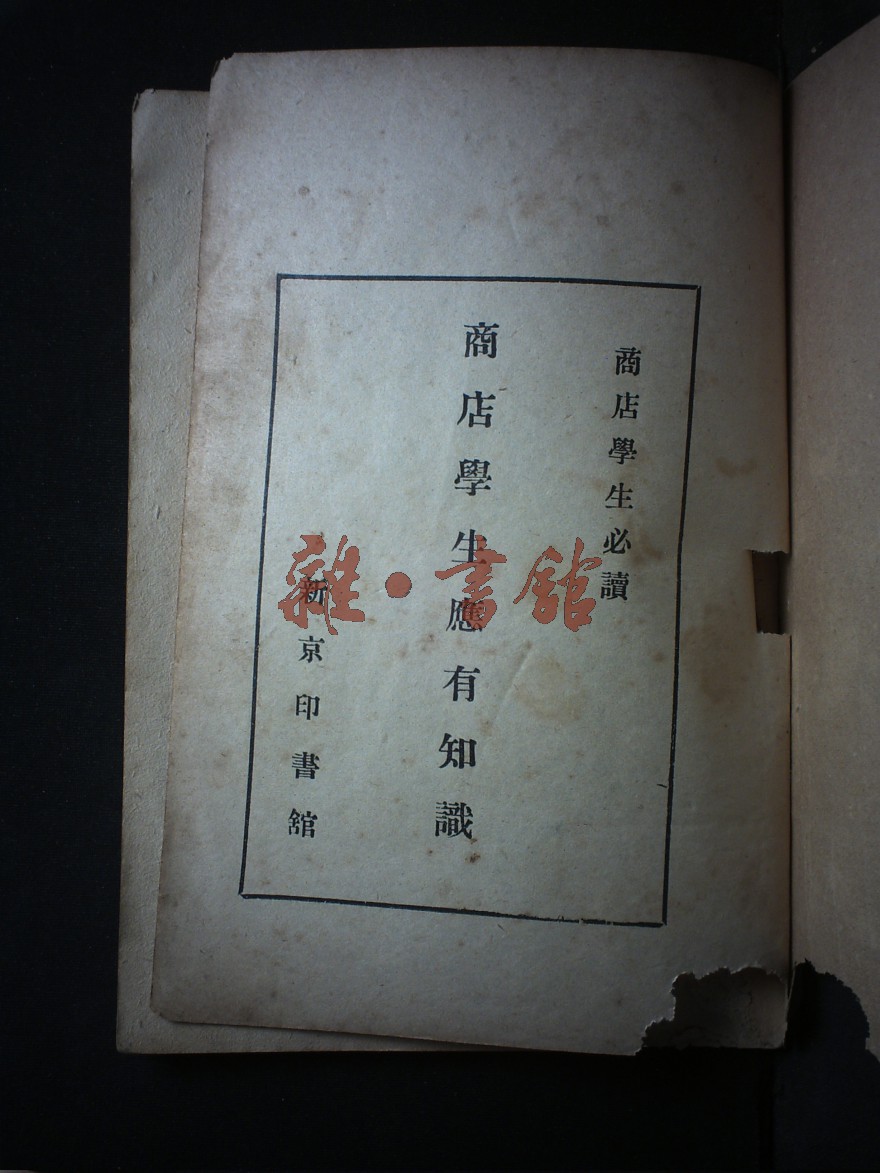 商店學生必讀
商店學生應有知識
新京印書舘
雜·書舘